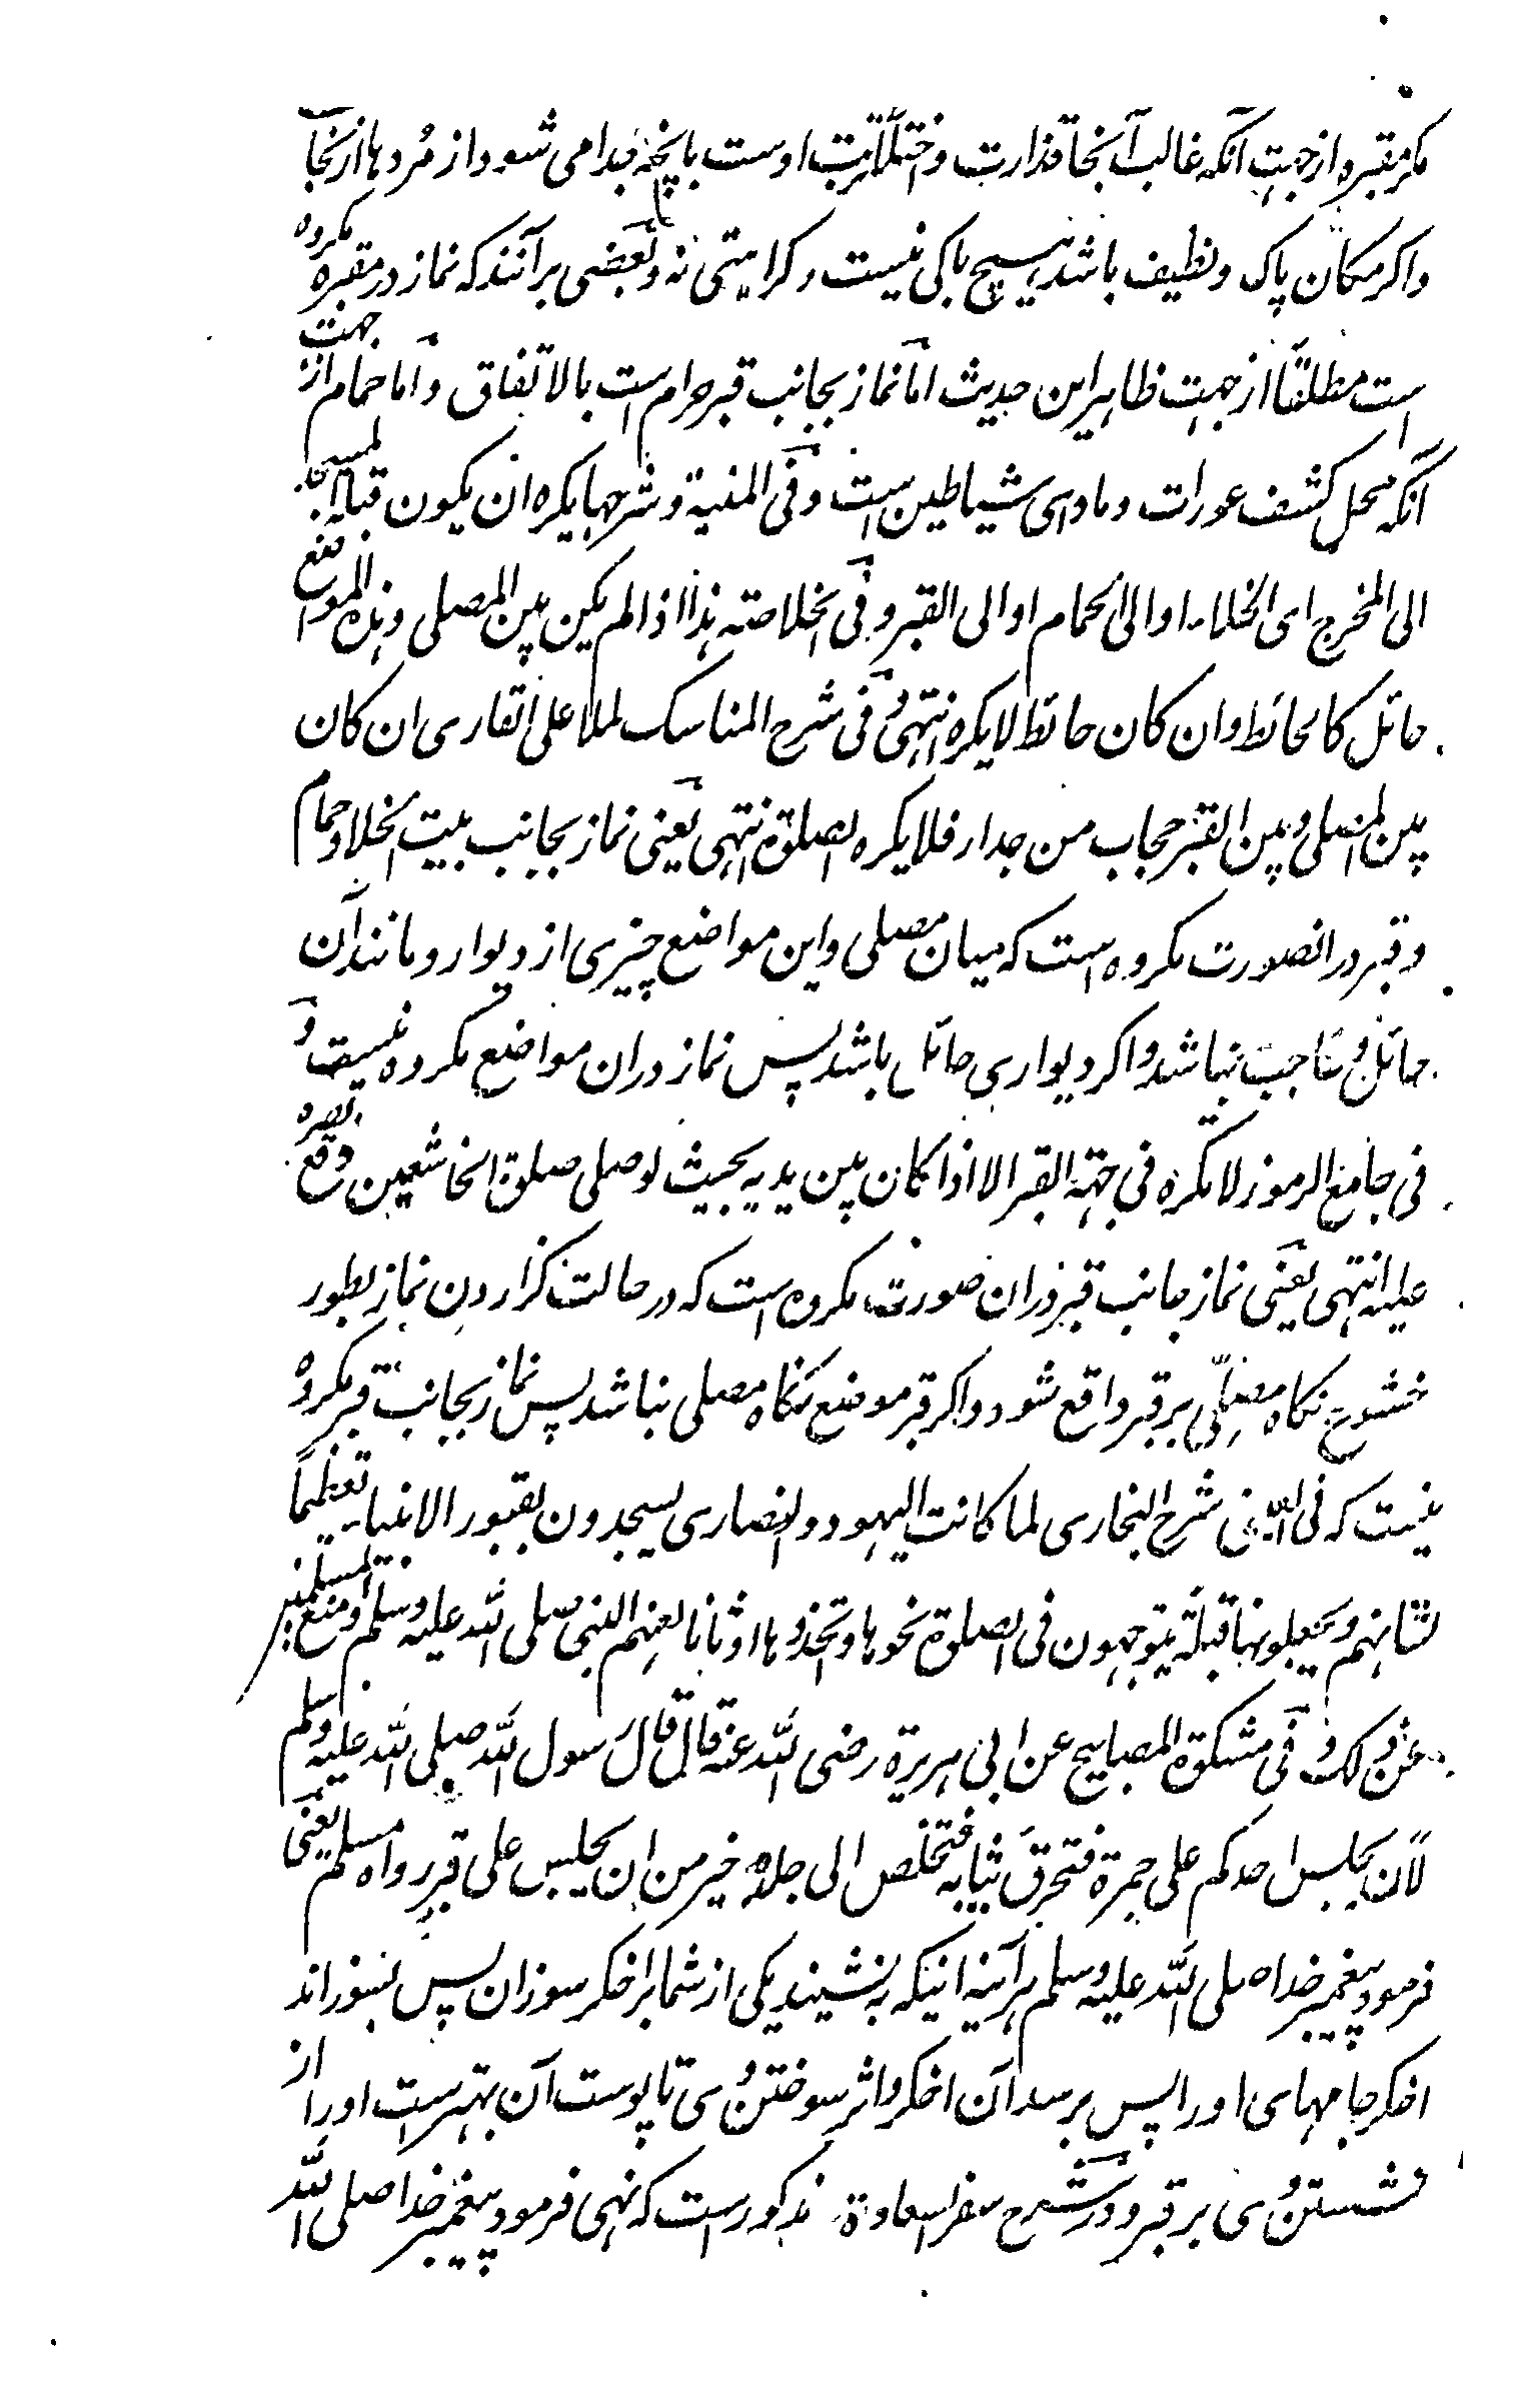 مگر مقبره از جهت آنکه غالب آنجا قذارت و اختلاط تربت اوست بانچه جدا می شود از مرده‌ها از نجا
واکر مکان پاک و نظیف باشد هیچ باکی نیست و کراهیتی نه و بعضی برآنند که نماز در مقبره مکروه
است مطلقاً از جهت ظاهر این حدیث اما نماز بجانب قبر حرام است بالاتفاق و اما حمام از جهت
آنکه محل کشف عورات و ماوای شیاطین است و فی المنیة و شرحها یکره ان یکون قبلة المسجد
الی المخرج ای الخلاء او الی الحمام او الی القبر و فی الخلاصته هذا اذا لم یکن بین المصلی و هذه المواضع
حائل کالحائط و ان کان حائط لا یکره انتهی و فی شرح المناسک لملا علی القاری ان کان
بین المصلی و بین القبر حجاب من جدار فلا یکره الصلوة انتهی یعنی نماز بجانب بیت الخلا و حمام
و قبر در انصورت مکروه است که میان مصلی و این مواضع چیزی از دیوار و مانند آن
حائل و حاجب نباشد و اکر دیواری حائل باشد پس نماز دران مواضع مکروه نیست و
فی جامع الرموز لا تکره فی جهة القبر الا اذا کان بین یدیه بحیث لو صلی صلوة الخاشعین وقع بصره
علیه انتهی یعنی نماز جانب قبر دران صورت مکروه است که در حالت گزاردن نماز بطور
خشوع نکاه مصلّی بر قبر واقع شود و اکر قبر موضع نکاه مصلی نباشد پس نماز بجانب قبر مکروه
نیست که فی شرح البخاری لما کانت الیهود والنصاری یسجدون بقبور الانبیاء تعظیماً
لشانهم و یجعلونها قبلة یتوجهون فی الصلوة نحوها و اتخذوها اوثانا لعنهم النبی صلی الله علیه وسلم و منع المسلمین
عن ذلک و فی مشکوة المصابیح عن ابی هریرة رضی الله عنه قال قال رسول الله صلی الله علیه وسلم
لأن یجلس احدکم علی جمرة فتحرق ثیابه فتخلص الی جلده خیر من ان یجلس علی قبر رواه مسلم یعنی
فرمود پیغمبر خدا صلی الله علیه وسلم هرآینه اینکه بنشیند یکی از شما بر اخکر سوزان پس بسوزاند
اخکر جامهای اورا پس برسد آن اخکر و اثر سوختن وی تا پوست آن بهتر است اورا از
نشستن وی بر قبر و در شرح سفر السعادة مذکور است که نهی فرمود پیغمبر خدا صلی الله